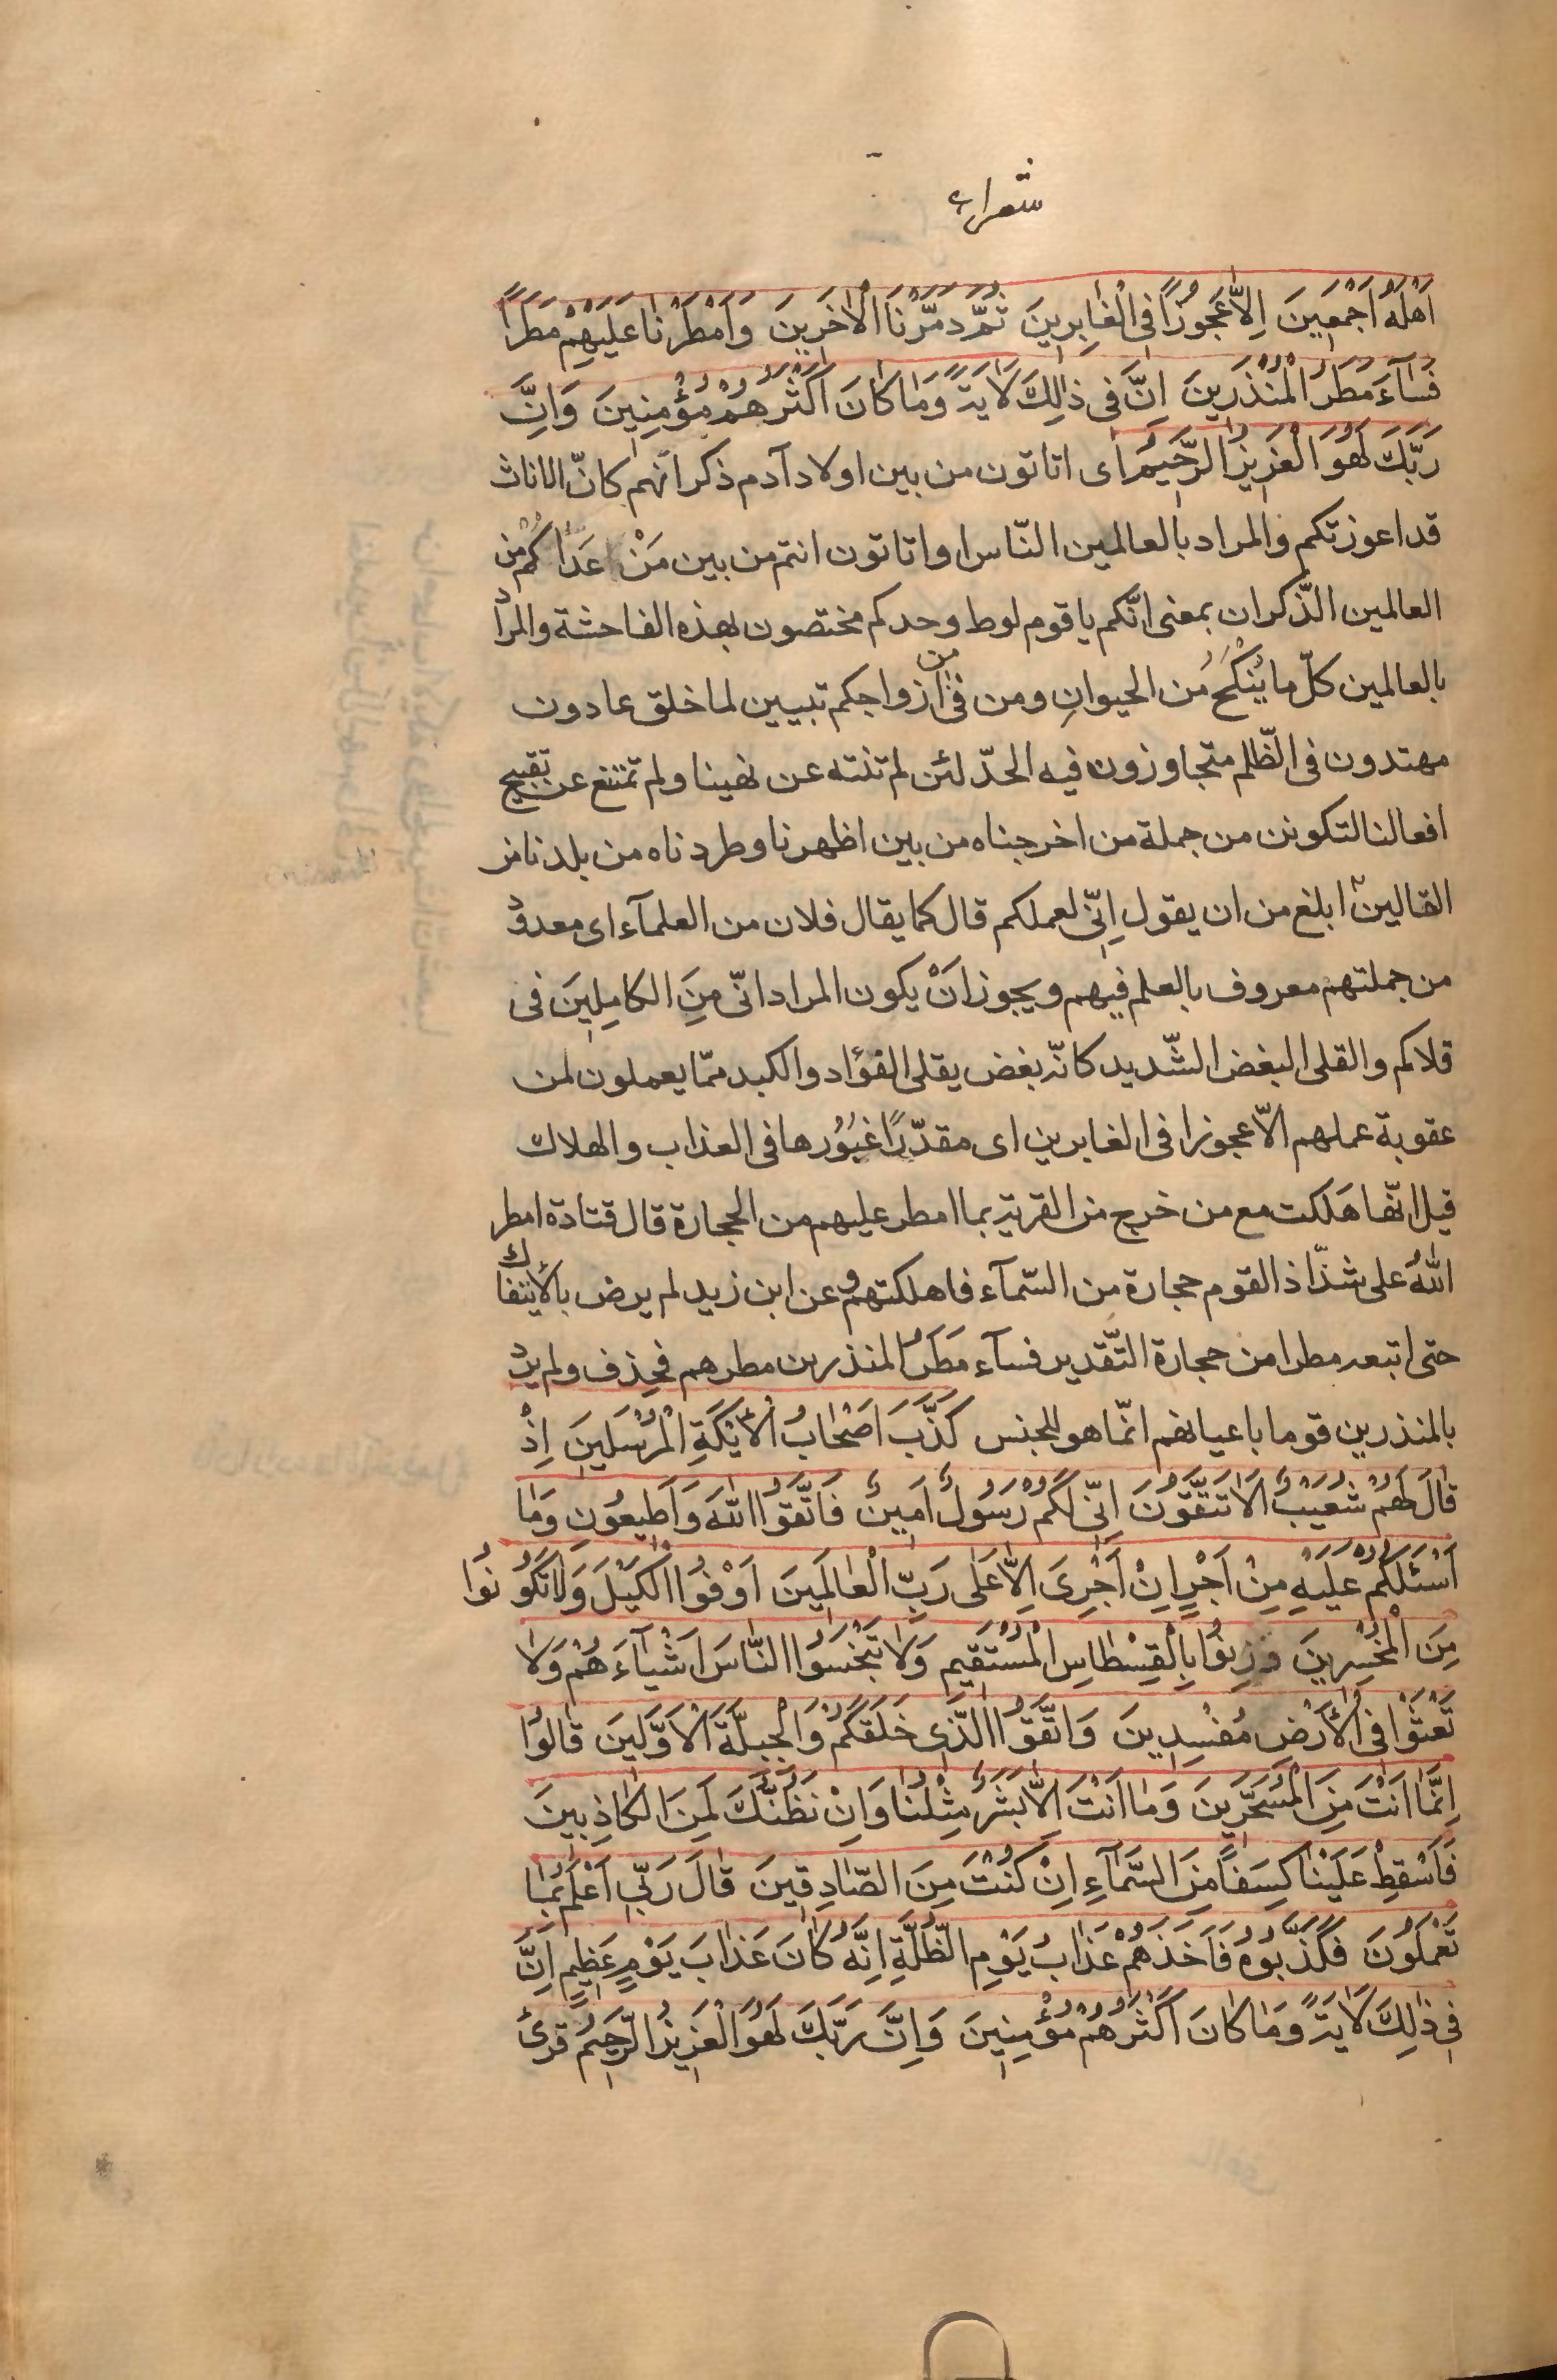 شعراء
اَهْلَهُ اَجْمَعِينَ اِلَّا عَجُوزًا فِى الْغٰابِرِينَ ثُمَّ دَمَّرْنَا الْاٰخَرِينَ وَاَمْطَرْنٰا عَلَيْهِمْ مَطَرًا
فَسٰآءَ مَطَرُ الْمُنْذَرِينَ اِنَّ فى ذٰلِكَ لَاٰيَةً وَمٰا كٰانَ اَكْثَرُهُمْ مُؤْمِنِينَ وَاِنَّ
رَبَّكَ لَهُوَ الْعَزِيزُ الرَّحِيمُ اى اتاتون من بين اولاد آدم ذكرانهم كانّ الاناث
قد اعوزتكم والمراد بالعالمين النّاس او اتاتون انتم من بين مَنْ عَدٰاكُم من
العالمين الذّكران بمعنى انّكم يا قوم لوط وحدكم مختصون بهذه الفاحشة والمراد
بالعالمين كلّ ما يُنْكَحُ مُن الحيوانِ ومن فى من ازواجكم تبيين لما خلق عادون
مهتدون فى الظّلم متجاوزون فيه الحدّ لئن لم تنته عن نهينا ولم تمتنع عن تقبيح
افعالنا لتكونن من جملة من اخرجناه من بين اظهرنا وطردناه من بلدنا من
القالين ابلغ من ان يقول اِنّى لعملكم قال كما يقال فلان من العلمآء اى معدود
من جملتهم معروف بالعلم فيهم ويجوز اَنْ يكون المراد انّى مِنَ الكامِلِينَ فى
قلاكم والقلى البغض الشّديد كانّه بغض يقلى الفؤاد والكبد ممّا يعملون لمن
عقوبة عملهم الّا عجوزا فى الغابرين اى مقدّرًا غُبُورها فى العذاب والهلاك
قيل انّها هَلكت مع من خرج من القرية بما امطر عليهم من الحجارة قال قتادة امطر
اللّٰهُ على شذّاذ القوم حجارة من السّمآء فاهلكتهم وعن ابن زيد لم يرض بالايتفاك
حتى اتبعه مطرا من حجارة التّقدير فسآء مَطَرُ المنذرين مطرهم فحذف ولم يرد
بالمنذرين قوما باعيانهم انّما هو للجنس كَذَّبَ اَصْحٰابُ الْاَيْكَةِ الْمُرْسَلِينَ اِذْ
قٰالَ لَهُمْ شُعَيْبٌ اَلَا تَتَّقُونَ اِنّى لَكُمْ رَسُولٌ اَمِينٌ فَاتَّقُوا اللّٰهَ وَاَطِيعُونِ وَمٰا
اَسْئَلُكُمْ عَلَيْهِ مِنْ اَجْرٍ اِنْ اَجْرِىَ اِلَّا عَلٰى رَبِّ الْعٰالَمِينَ اَوْفُوا الْكَيْلَ وَلٰا تَكُونُوا
مِنَ الْمُخْسِرِينَ وَزِنُوا بِالْقِسْطٰاسِ الْمُسْتَقِيمِ وَلٰا تَبْخَسُوا النّٰاسَ اَشْيٰآءَهُمْ وَلٰا
تَعْثَوْا فِى الْاَرْضِ مُفْسِدِينَ وَاتَّقُوا الَّذِى خَلَقَكُمْ وَالْجِبِلَّةَ الْاَوَّلِينَ قٰالُوا
اِنَّمٰا اَنْتَ مِنَ الْمُسَحَّرِينَ وَمٰا اَنْتَ اِلَّا بَشَرٌ مِثْلُنٰا وَاِنْ نَظُنُّكَ لَمِنَ الْكٰاذِبِينَ
فَاَسْقِطْ عَلَيْنٰا كِسَفًا مِنَ السَّمٰآءِ اِنْ كُنْتَ مِنَ الصّٰادِقِينَ قٰالَ رَبّى اَعْلَمُ بِمٰا
تَعْمَلُونَ فَكَذَّبُوهُ فَاَخَذَهُمْ عَذٰابُ يَوْمِ الظُّلَّةِ اِنَّهُ كٰانَ عَذٰابَ يَوْمٍ عَظِيمٍ اِنَّ
فى ذٰلِكَ لَاٰيَةً وَمٰا كٰانَ اَكْثَرُهُمْ مُؤْمِنِينَ وَاِنَّ رَبَّكَ لَهُوَ الْعَزِيزُ الرَّحِيمُ قرئ